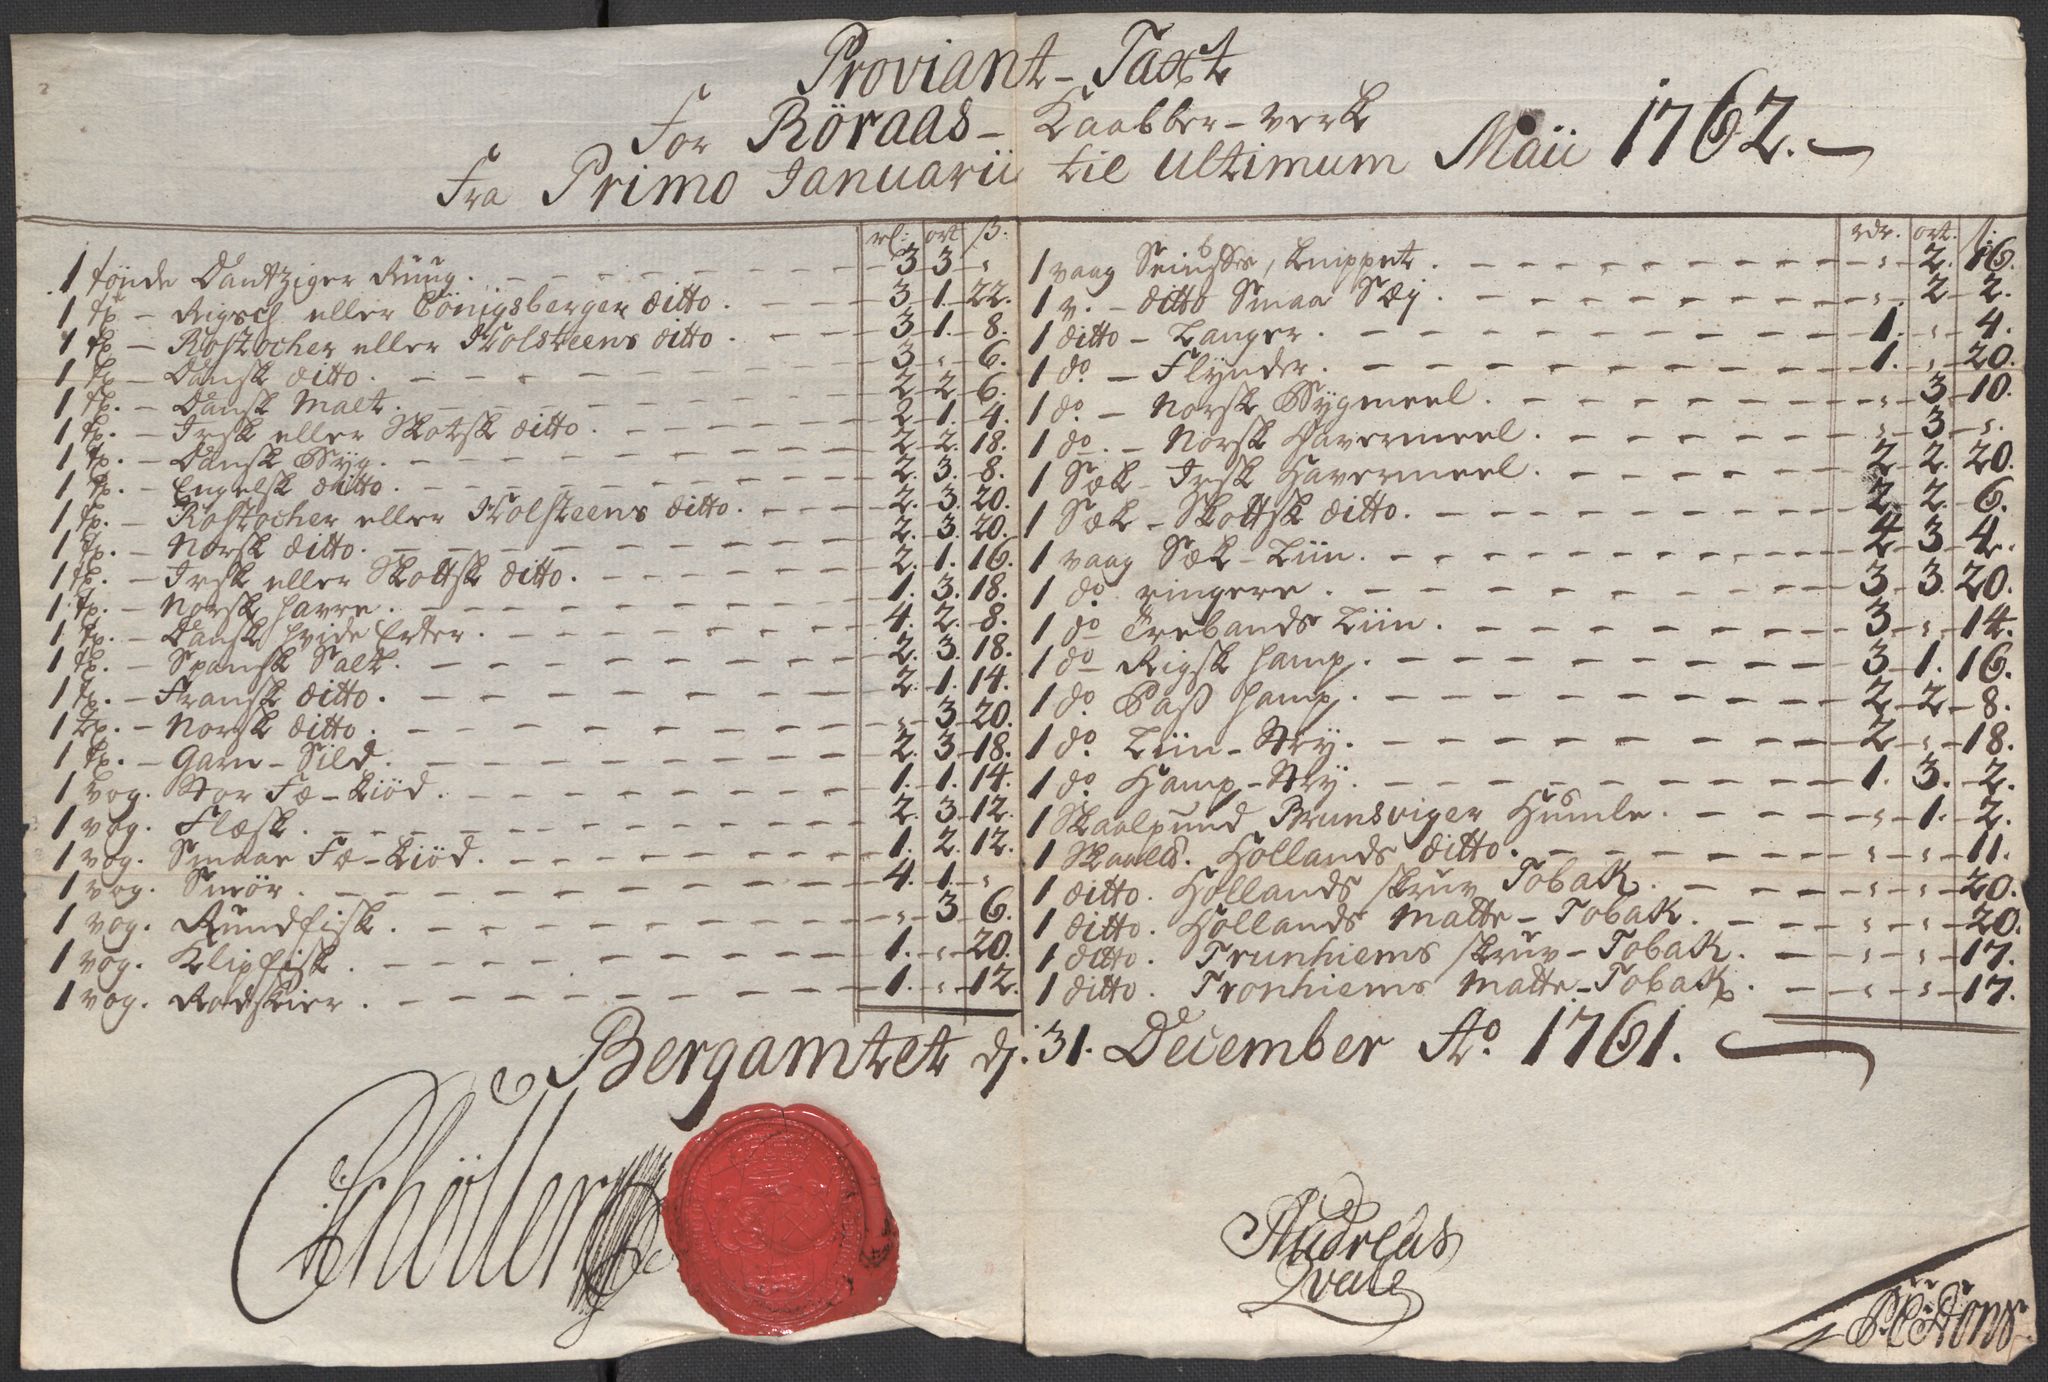 Proviant-Taxt
For Röraas-Kaabber-verk
Fra Primo Januarii til ultimum Maii 1762.
rl: ort ß.
1 tönde Dantziger Ruug. 3 3 "
1 tp - Rigsch eller Cönigsberger ditto. 3. 1. 22.
1 tp - Rostocher eller Holsteens ditto. 3 1. 8.
1 tp - Dansk ditto. 3 " 6.
1 tp. - Dansk Malt. 2 2 6.
1 tp. - Irsk eller Skotsk ditto. 2 1. 4.
1 tp. - Dansk Byg. 2 2. 18.
1 tp. - Engelsk ditto. 2. 3. 8.
1 tp. - Rostocher eller Holsteens ditto. 2. 3. 20.
1 tp. - Norsk ditto. 2. 3. 20.
1 tp. - Irsk eller Skottsk ditto. 2. 1. 16.
1 tp. - Norsk havre. 1. 3. 18.
1 tp. - Dansk hvide Erter. 4. 2. 8.
1 tp. - Spansk Salt. 2. 3. 18.
1 tp. - Fransk ditto. 2. 1. 14.
1 tp. - Norsk ditto. " 3. 20.
1 tp. - Garn-Sild. 2. 3. 18.
1 vog. Stor Fæ-Kiöd. 1. 1. 14.
1 vog. Flæsk. 2. 3. 12.
1 vog. Smaae Fæ-Kiöd. 1. 2. 12.
1 vog. Smör. 4. 1. "
1 vog. Rundfisk. " 3 6.
1 vog. Klipfisk. 1. " 20.
1 vog. Rodskier. 1. " 12.
rdr. ort. ß.
1 vaag knippet. " 2. 16.
1 v. - ditto Smaa Sey. " 2 2.
1 ditto - Langer. 1. " 4.
1 do. - Flynder. 1. " 20.
1 do - Norsk Bygmeel. " 3 10.
1 do. - Norsk Havermeel. " 3 "
1 Sæk - Irsk Havermeel. 2 2. 20.
1 Sæk - Skottsk ditto. 2 2 6.
1 vaag Sæk-Liin. 4 3 4.
1 do. ringere. 3 3. 20.
1 do Trebands Liin. 3 " 14.
1 do Rigsk hamp. 3 1. 16.
1 do. Pass hamp. 2 2 8.
1 do. Liin-Stry. 2 " 18.
1 do. Hamp-Stry. 1. 3. 2.
1 Skaalpund Brunsviger Humle. " 1. 2.
1 Skaalld. Hollands ditto. " " 11.
1 ditto. Hollands skruv Tobak. " " 20.
1 ditto. Hollands Matte-Tobak. " " 20.
1 ditto. Trunhiems skruv-Tobak. " " 17.
1 ditto. Tronhiems Matte-Tobak. " " 17.
Bergamtet dj. 31. December Ao. 1761.
Schöller
Andreas
Qvale